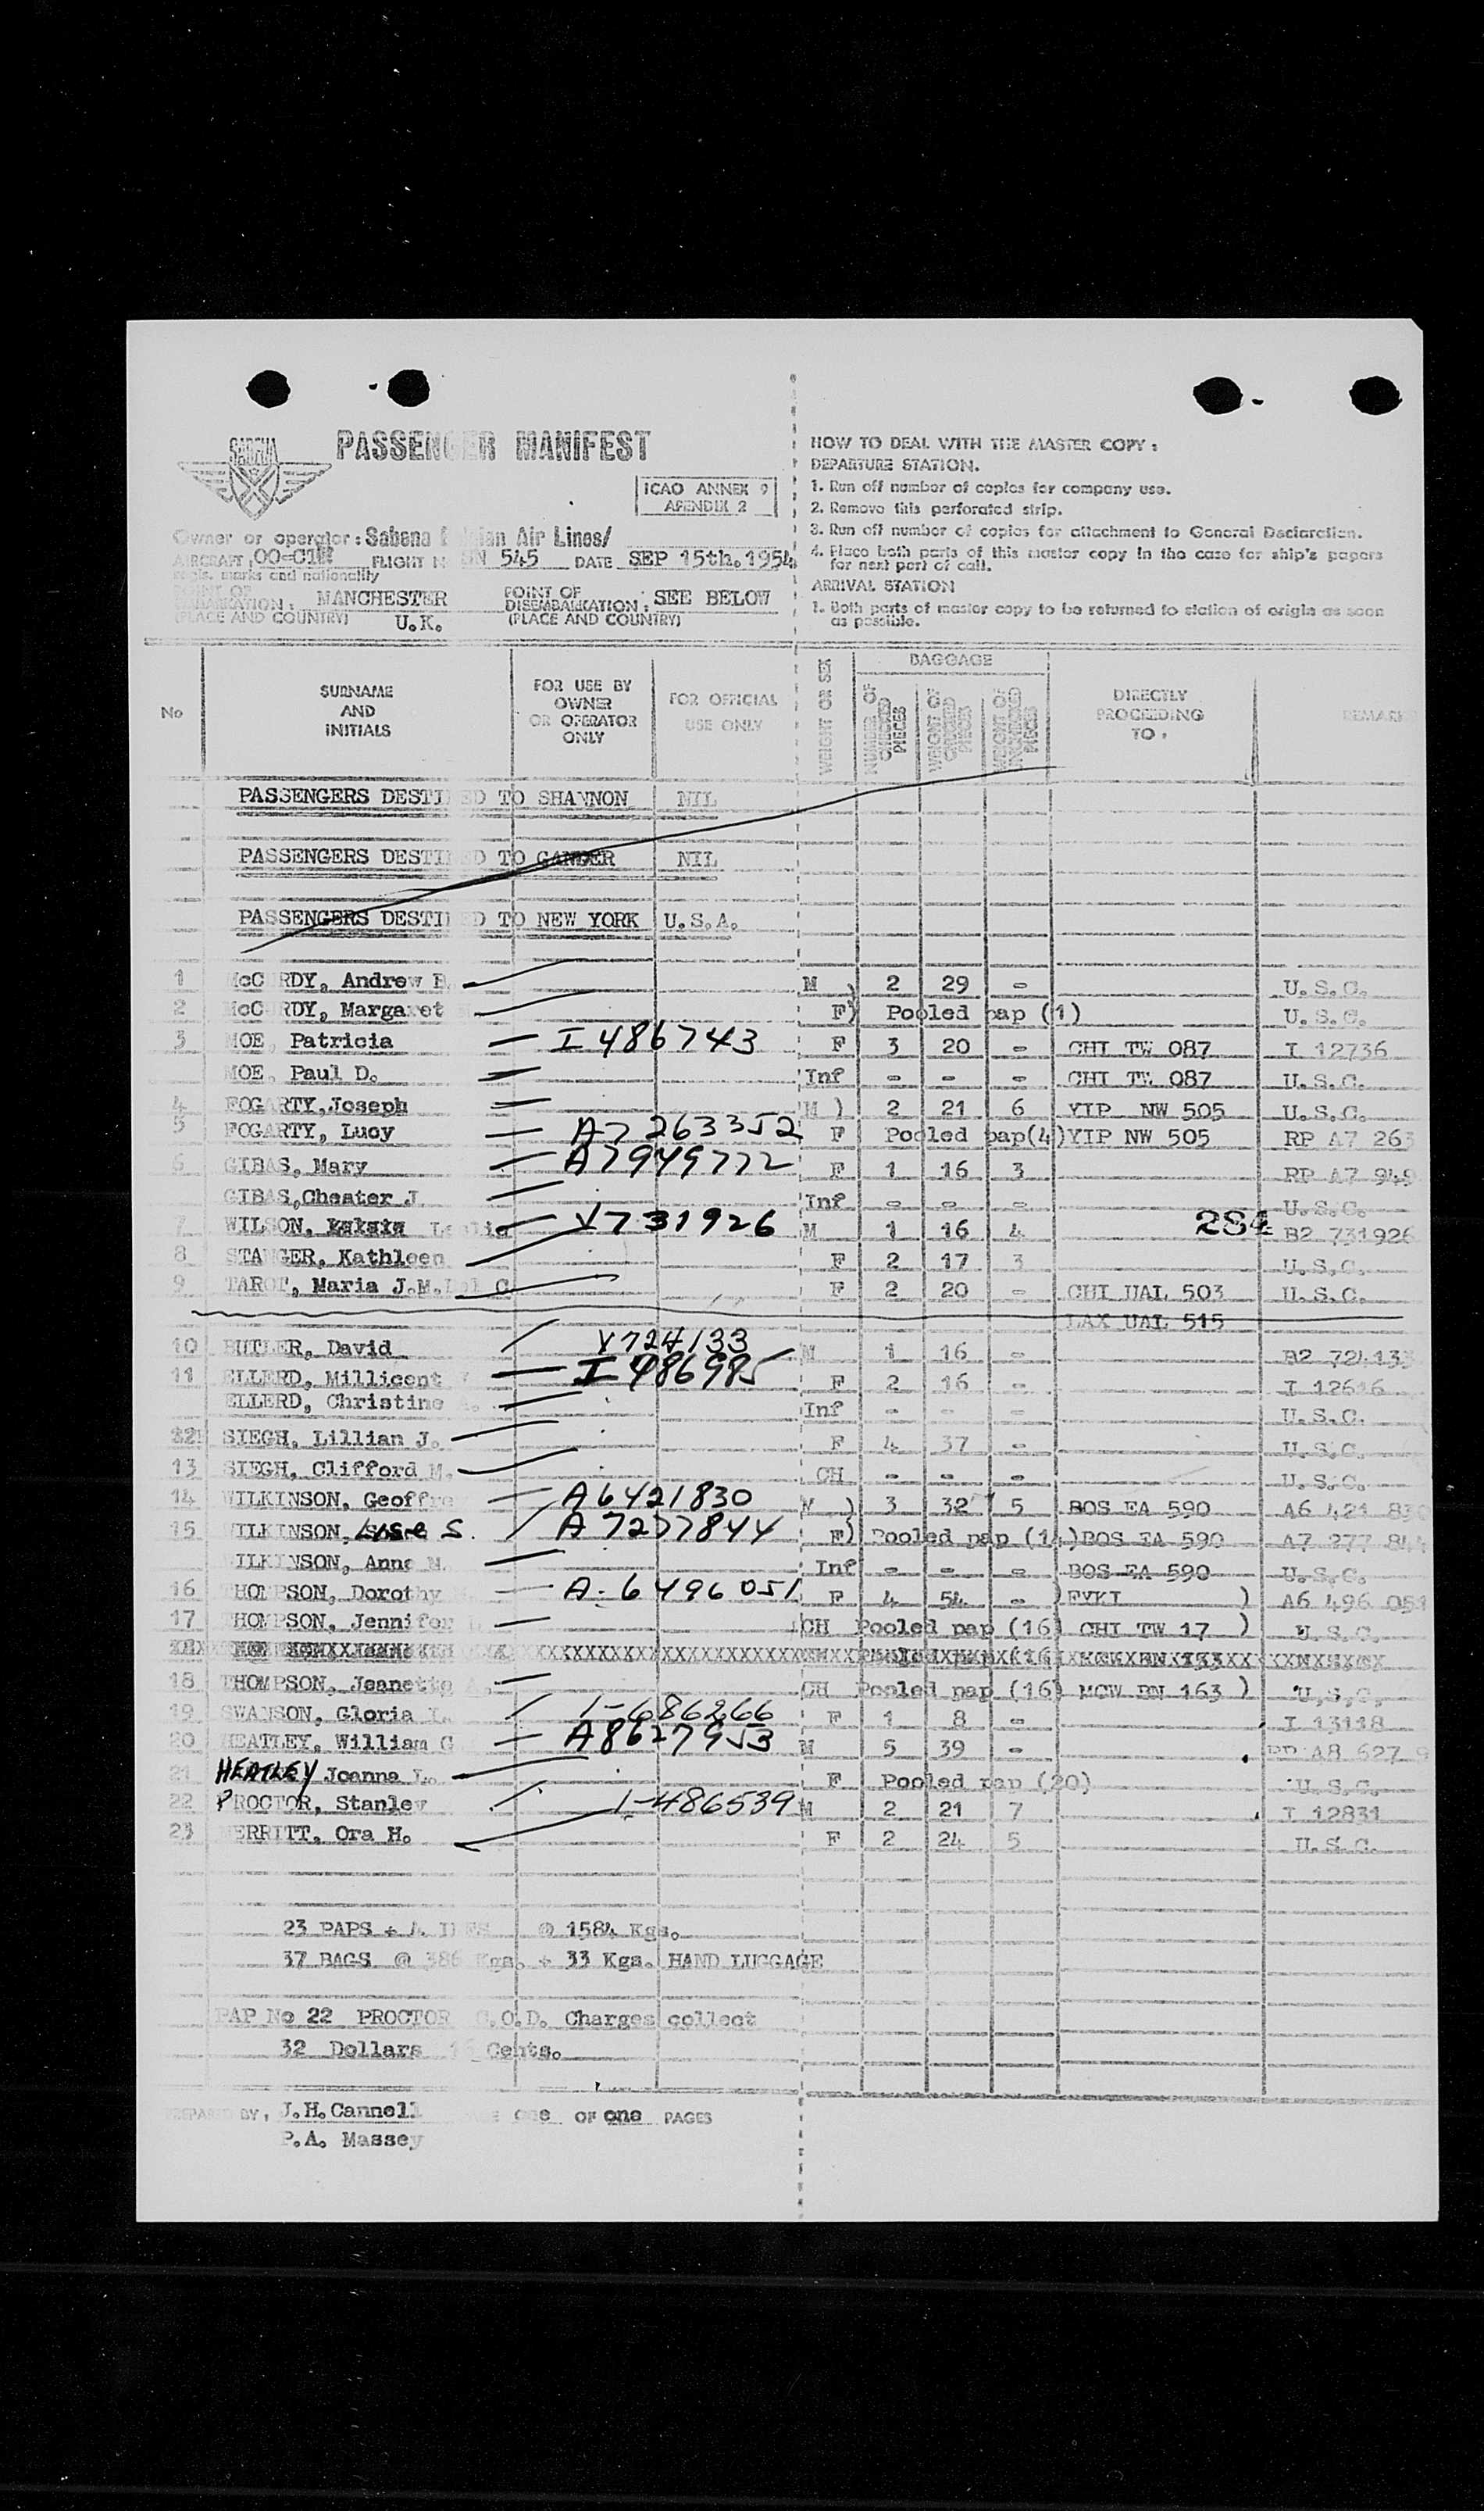 SABENA
PASSENGER MANIFEST
ICAO ANNEX 9
APENDIX 2
Owner or operator: Sabena Air Lines/
AIRCRAFT FLIGHT 545 DATE SEP 15th. 1954
regis. marks and nationality
POINT OF EMBARKATION: MANCHESTER POINT OF DISEMBARKATION: SEE BELOW
(PLACE AND COUNTRY) U.K. (PLACE AND COUNTRY)
HOW TO DEAL WITH THE MASTER COPY:
DEPARTURE STATION.
1. Run off number of copies for company use.
2. Remove this perforated strip.
3. Run off number of copies for attachment to General Declaration.
4. Place both parts of this master copy in the case for ship's papers
for next port of call.
ARRIVAL STATION
1. Both parts of master copy to be returned to station of origin as soon
as possible.
No
SURNAME
AND
INITIALS
FOR USE BY
OWNER
OR OPERATOR
ONLY
FOR OFFICIAL
USE ONLY
WEIGHT OR SEX
BAGGAGE
NUMBER OF CHECKED PIECES
WEIGHT OF CHECKED PIECES
WEIGHT OF UNCHECKED PIECES
DIRECTLY
PROCEEDING
TO
REMARK
PASSENGERS DESTI ED TO SHANNON NIL
PASSENGERS DESTI D TO GANDER NIL
PASSENGERS DESTI D TO NEW YORK U.S.A.
1 McC RDY, Andrew M ) 2 29 - U.S.C.
2 McC RDY, Margaret F) Pooled pap (1) U.S.C.
3 MOE, Patricia I 486743 F 3 20 - CHI TW 087 I 12736
MOE, Paul D. Inf - - - CHI TW 087 U.S.C.
4 FOGARTY, Joseph M ) 2 21 6 YIP NW 505 U.S.C.
5 FOGARTY, Lucy A7 263352 F Pooled pap(4) YIP NW 505 RP A7 263
6 GIBAS, Mary A7949772 F 1 16 3 RP A7 949
GIBAS, Chester J. Inf - - - U.S.C.
284
7 WILSON, Leslie V731926 M 1 16 4 B2 731926
8 STANGER, Kathleen F 2 17 3 U.S.C.
9 TAROT, Maria J.M. F 2 20 - CHI UAL 503 U.S.C.
LAX UAL 515
10 BUTLER, David V724133 M 1 16 - B2 724133
11 ELLERD, Millicent I 486985 F 2 16 - I 12616
ELLERD, Christine Inf - - - U.S.C.
SIEGH, Lillian J. F 4 37 - U.S.C.
13 SIEGH, Clifford M. CH - - - U.S.C.
14 WILKINSON, Geoffre A6421830 M ) 3 32 5 BOS EA 590 A6 421 830
15 WILKINSON, S. A 7277844 F) Pooled pap (14) BOS EA 590 A7 277 844
WILKINSON, Anne M. Inf - - - BOS EA 590 U.S.C.
16 THOMPSON, Dorothy A-6496051 F 4 54 - ) ) A6 496 051
17 THOMPSON, Jennifer CH Pooled pap (16) CHI TW 17 ) U.S.C.
18 THOMPSON, Jeanette CH Pooled pap (16) MCW BN 163 ) U.S.C.
19 SWANSON, Gloria L. I-686266 F 1 8 - I 13118
20 HEATLEY, William G A8627953 M 5 39 - RP A8 627 9
21 HEATLEY Joanna L. F Pooled pap (20) U.S.C.
22 PROCTOR, Stanley I-486539 M 2 21 7 I 12831
23 ERRITT, Ora H. F 2 24 5 U.S.C.
23 PAPS + @ 1584 Kgs.
37 BAGS @ 386 Kgs. + 33 Kgs. HAND LUGGAGE
PAP No 22 PROCTOR C.O.D. Charges collect
32 Dollars Cents.
PREPARED BY, J.H. Cannell one OF one PAGES
P.A. Massey